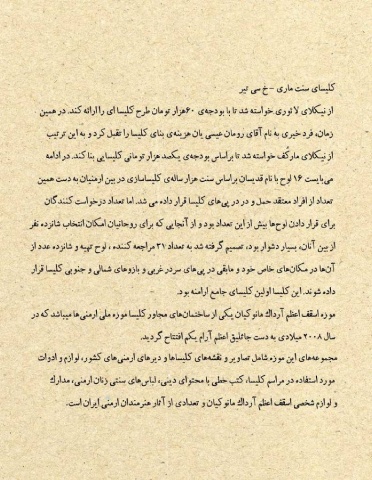 کلیسای سنت ماری - خ سی تیر
از نیکلای لائوری خواسته شد تا با بودجه‌ی ۶۰هزار تومان طرح کلیسا ای را ارائه کند. در همین
زمان، فرد خیری به نام آقای رومان عیسی یان هزینه‌ی بنای کلیسا را تقبل کرد و به این ترتیب
از نیکلای مارکُف خواسته شد تا براساس بودجه‌ی یکصد هزار تومانی کلیسایی بنا کند. در ادامه
می‌بایست ۱۶ لوح با نام قدیسان براساس سنت هزار ساله‌ی کلیساسازی در بین ارمنیان به دست همین
تعداد از افراد معتقد حمل و در در پی‌های کلیسا قرار داده می شد. اما تعداد درخواست کنندگان
برای قرار دادن لوح‌ها بیش از این تعداد بود و از آنجایی که برای روحانیان امکان انتخاب شانزده نفر
از بین آنان، بسیار دشوار بود، تصمیم گرفته شد به تعداد ۳۱ مراجعه کننده ، لوح تهیه و شانزده عدد از
آن‌ها در مکان‌های خاص خود و مابقی در پی‌های سردر غربی و بازوهای شمالی و جنوبی کلیسا قرار
داده شوند. این کلیسا اولین کلیسای جامع ارامنه بود.
موزه اسقف اعظم آرداک مانوکیان یکی از ساختمان‌های مجاور کلیسا موزه ملی ارمنی‌ها میباشد که در
سال ۲۰۰۸ میلادی به دست جاثلیق اعظم آرام یکم افتتاح گردید.
مجموعه‌های این موزه شامل تصاویر و نقشه‌های کلیساها و دیرهای ارمنی‌های کشور، لوازم و ادوات
مورد استفاده در مراسم کلیسا، کتب خطی با محتوای دینی، لباس‌های سنتی زنان ارمنی، مدارک
و لوازم شخصی اسقف اعظم آرداک مانوکیان و تعدادی از آثار هنرمندان ارمنی ایران است.